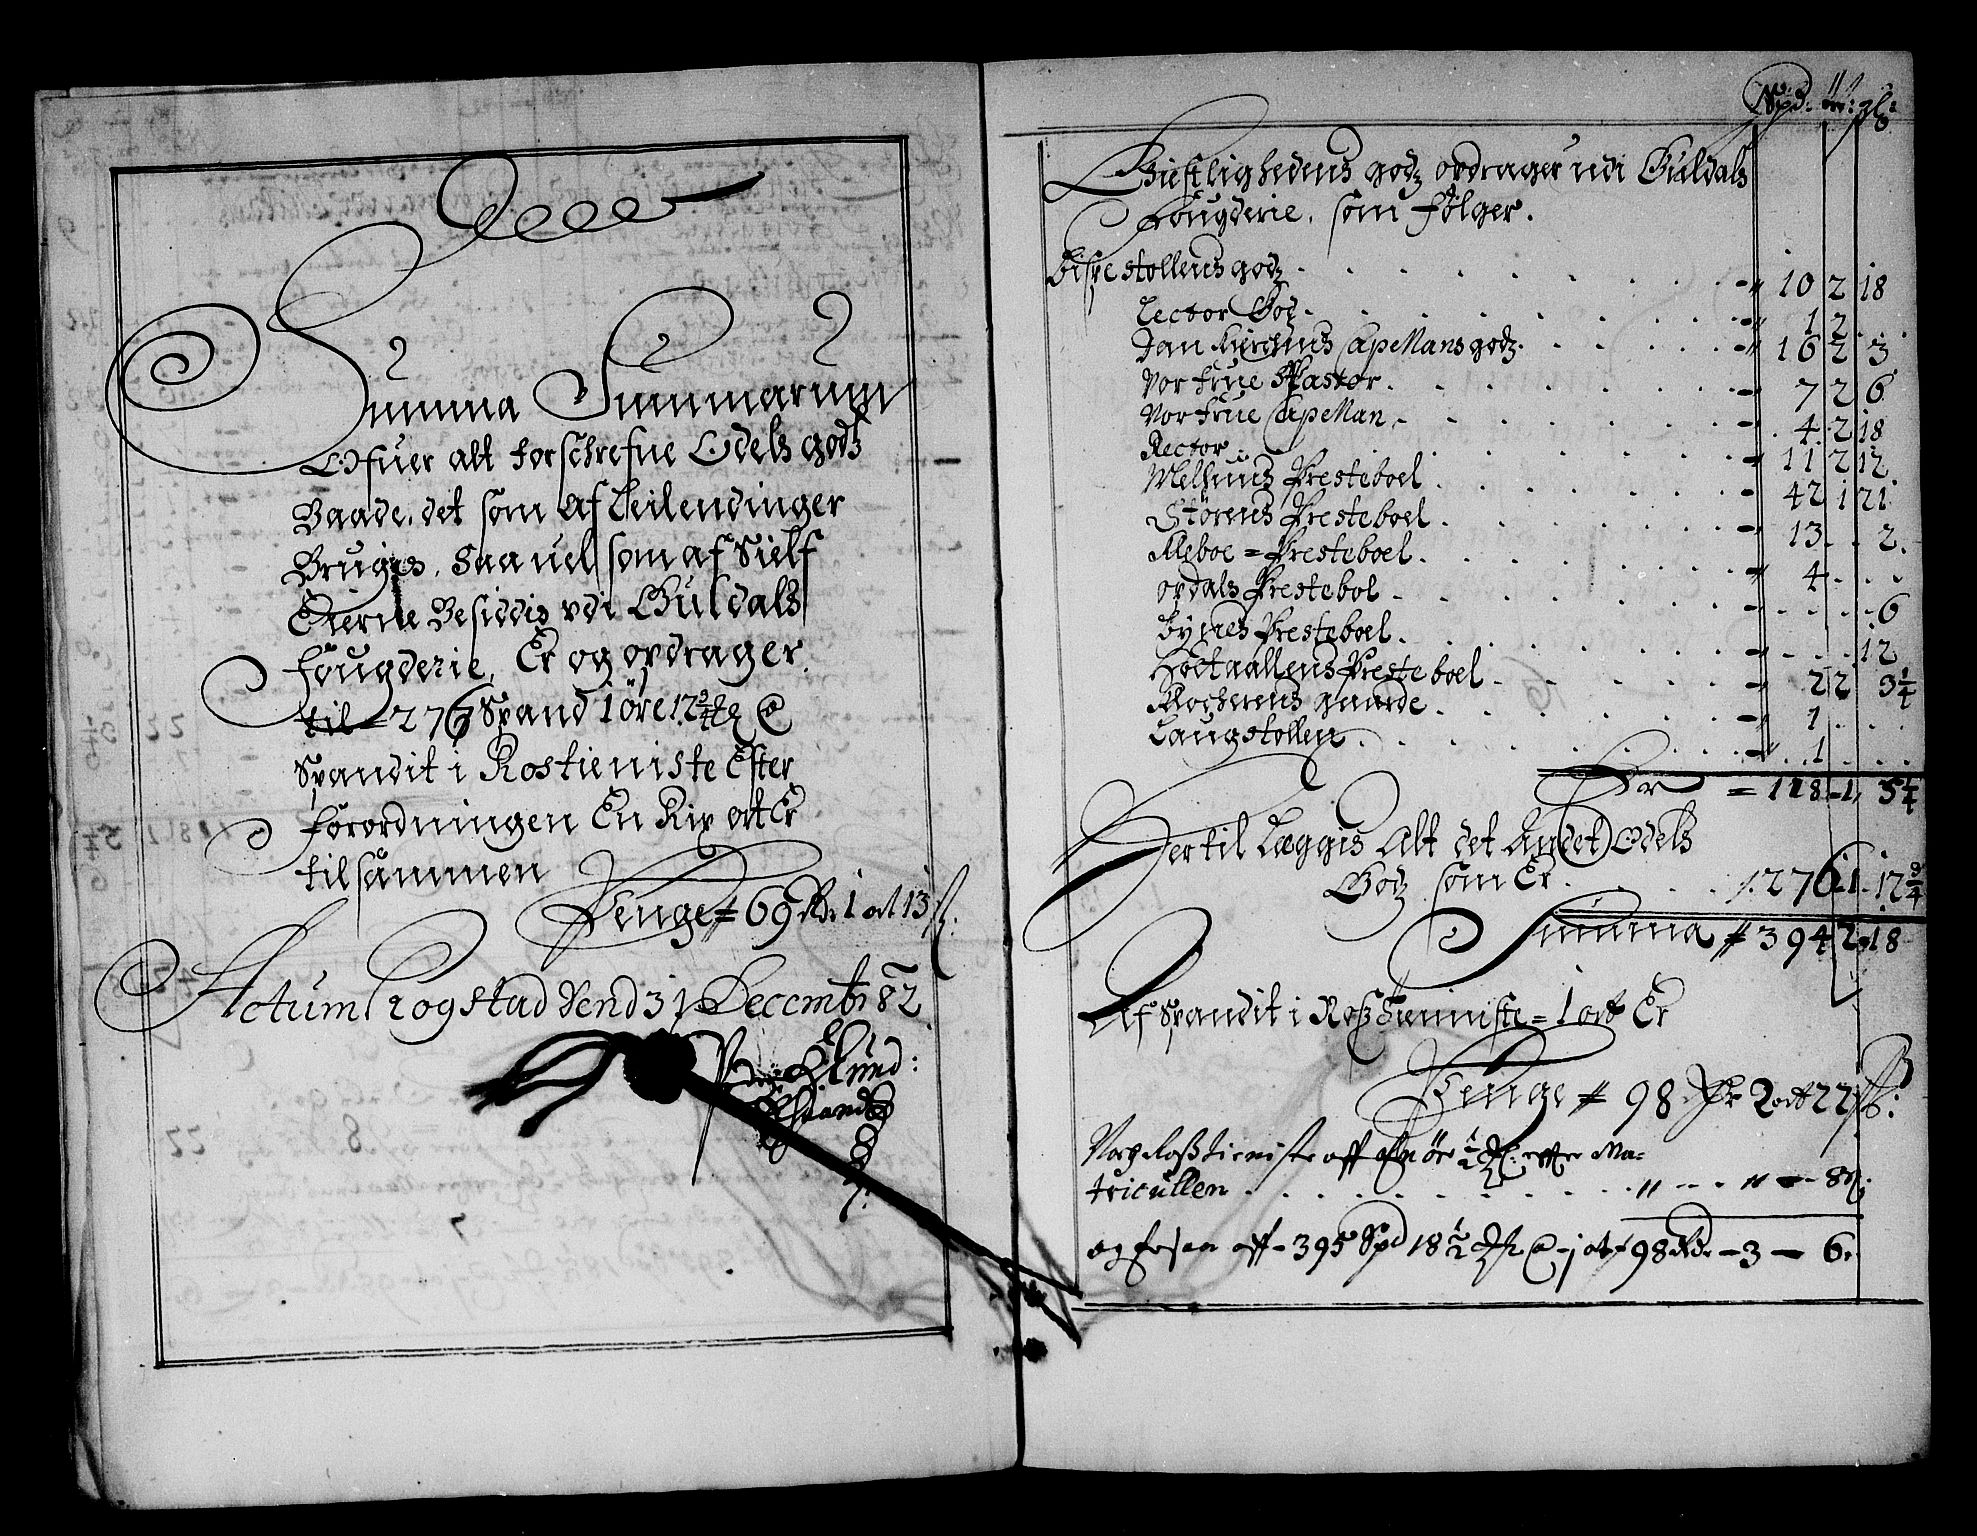 Summa Summarum
Ofuer alt forschrefne Odels godtz
Baade det som af Leilendinger
Bruges, saa uel som af Sielf
Eierne Besiddis vdi Guldals
fougderie, Er og opdrager
til = 276 Spand 1 öre 12¾
Spandit i Rostieniste Efter
forordningen En Rix ort Er
tilsammen
Penge # 69 Rdr 1 ort 13 ß:
Actum Rogstad Dend 31 Decembr 82
Elund:
Spd: ör: gl:
Giestlighedens godz opdrager udi Guldals
Fougderie, som følger.
Bispestollens godz - 10 2 18
Lector Godz - 1 2
Dom Kirchens Capellans godz - 16 2 3
Vor frue Pastor - 7 2 6
Vor frue Capellan - 4 2 18
Rector - 11 2 12
Melhuus Presteboel - 42 1 21
Störens Presteboel - 13 . 2
Aleboe = Presteboel - 4
opdals Prestebol - . . 6
Bynes Presteboel - . . 12
Hoctaallens Presteboel - 2 2 3¼
Kocherens gaarde - 1
Laugstollen - 1
Er = 118 - 1 5¼
Hertil Læggis Alt det Andet Odels
Godz som Er . . . 276 - 1 - 12¾
Summa # 394 2 18
Af Spandit i Rosstienniste = 1 ort Er
Penge # 98 Rdr 2 ort 22 ß:
Noch Rosstieniste aff En öre ½ gl: effter Ma=
tricullen . . . . " - - " - 8 ß
og fosaa aff - 395 Spd 18½ gl @ - j ort # 98 Rdr - 3 - 6.